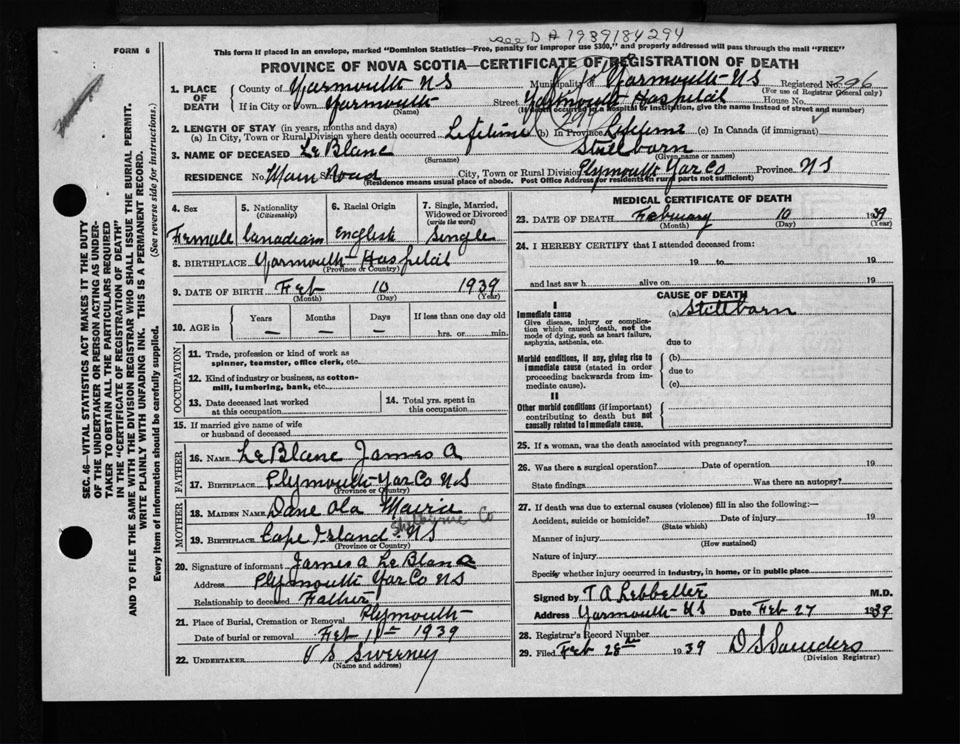 see DA 1939184294
FORM 6
This form if placed in an envelope, marked "Dominion Statistics—Free, penalty for improper use $300," and properly addressed will pass through the mail "FREE"
PROVINCE OF NOVA SCOTIA—CERTIFICATE OF REGISTRATION OF DEATH
1. PLACE OF DEATH
County of Yarmouth NS Municipality of Yarmouth NS Registered No. 296
(For use of Registrar General only)
If in City or Town Yarmouth Street Yarmouth Hospital House No.
(Name) (If death occurred in a hospital or institution, give the name instead of street and number)
2. LENGTH OF STAY (in years, months and days)
(a) In City, Town or Rural Division where death occurred Lifetime (b) In Province Lifetime (c) In Canada (if immigrant)
3. NAME OF DECEASED LeBlanc Stillborn
(Surname) (Given name or names)
RESIDENCE No. Main Road City, Town or Rural Division Plymouth Yar Co Province NS
(Residence means usual place of abode. Post Office Address for residents in rural parts not sufficient)
4. Sex 5. Nationality (Citizenship) 6. Racial Origin 7. Single, Married, Widowed or Divorced (write the word)
Female Canadian English Single
8. BIRTHPLACE Yarmouth Hospital
(Province or Country)
9. DATE OF BIRTH Feb 10 1939
(Month) (Day) (Year)
10. AGE in Years Months Days If less than one day old
hrs. or min.
OCCUPATION
11. Trade, profession or kind of work as spinner, teamster, office clerk, etc.
12. Kind of industry or business, as cotton-mill, lumbering, bank, etc.
13. Date deceased last worked at this occupation
14. Total yrs. spent in this occupation
15. If married give name of wife or husband of deceased
FATHER
16. NAME LeBlanc James A
17. BIRTHPLACE Plymouth Yar Co NS
(Province or Country)
MOTHER
18. MAIDEN NAME Dane Ola Mairie
Shelburne Co
19. BIRTHPLACE Cape Island NS
(Province or Country)
20. Signature of informant James A LeBlanc
Address Plymouth Yar Co NS
Relationship to deceased Father
21. Place of Burial, Cremation or Removal Plymouth
Date of burial or removal Feb 11th 1939
22. UNDERTAKER V S Sweeney
(Name and address)
MEDICAL CERTIFICATE OF DEATH
23. DATE OF DEATH February 10 1939
(Month) (Day) (Year)
24. I HEREBY CERTIFY that I attended deceased from:
19 to 19
and last saw h alive on 19
CAUSE OF DEATH
I
Immediate cause (a) Stillborn
Give disease, injury or complication which caused death, not the mode of dying, such as heart failure, asphyxia, asthenia, etc.
due to
Morbid conditions, if any, giving rise to immediate cause (stated in order proceeding backwards from immediate cause).
(b)
due to
(c)
II
Other morbid conditions (if important) contributing to death but not causally related to immediate cause.
25. If a woman, was the death associated with pregnancy?
26. Was there a surgical operation? Date of operation 19
State findings Was there an autopsy?
27. If death was due to external causes (violence) fill in also the following:—
Accident, suicide or homicide? Date of injury 19
(State which)
Manner of injury
(How sustained)
Nature of injury
Specify whether injury occurred in industry, in home, or in public place
Signed by T A Lebbetter M.D.
Address Yarmouth NS Date Feb 27 1939
28. Registrar's Record Number
29. Filed Feb 28th 1939 D S Saunders
(Division Registrar)
SEC. 46—VITAL STATISTICS ACT MAKES IT THE DUTY
OF THE UNDERTAKER OR PERSON ACTING AS UNDER-
TAKER TO OBTAIN ALL THE PARTICULARS REQUIRED
IN THE "CERTIFICATE OF REGISTRATION OF DEATH"
AND TO FILE THE SAME WITH THE DIVISION REGISTRAR WHO SHALL ISSUE THE BURIAL PERMIT.
WRITE PLAINLY WITH UNFADING INK. THIS IS A PERMANENT RECORD.
Every item of Information should be carefully supplied. (See reverse side for instructions.)